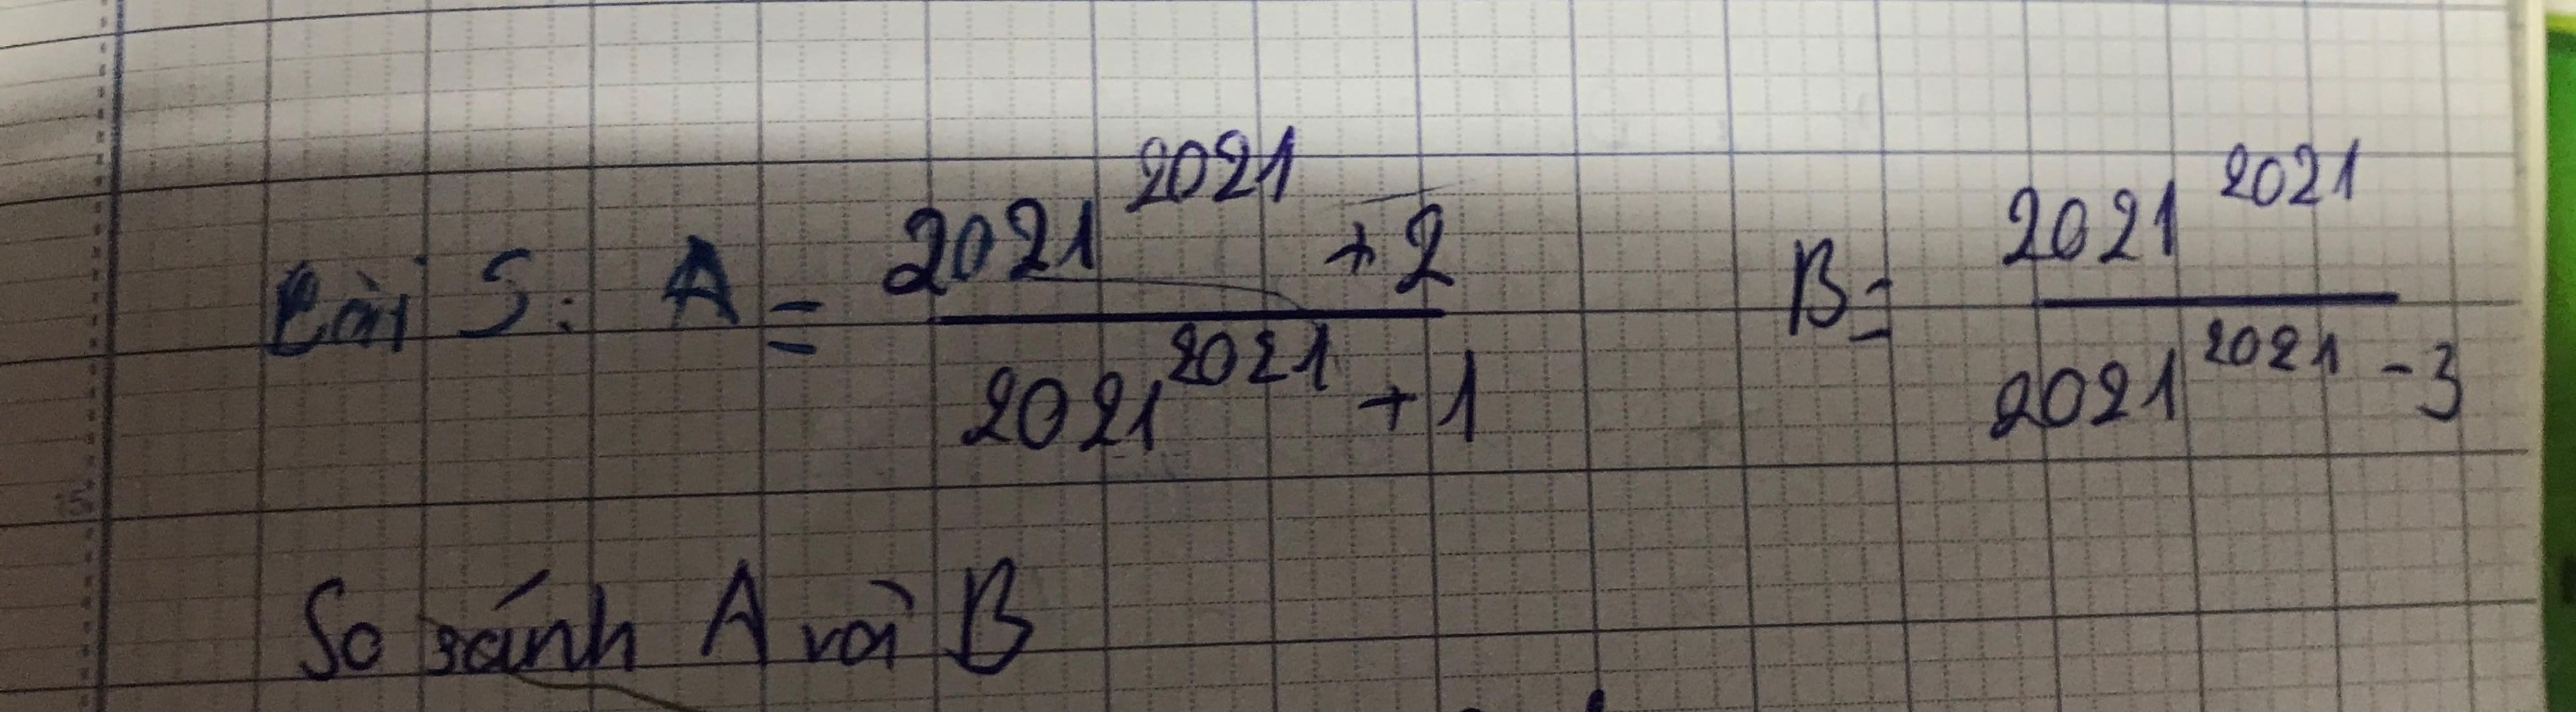 Bài 5: A = \frac{2021^{2021} + 2}{2021^{2021} + 1} B = \frac{2021^{2021}}{2021^{2021} - 3}
So sánh A và B